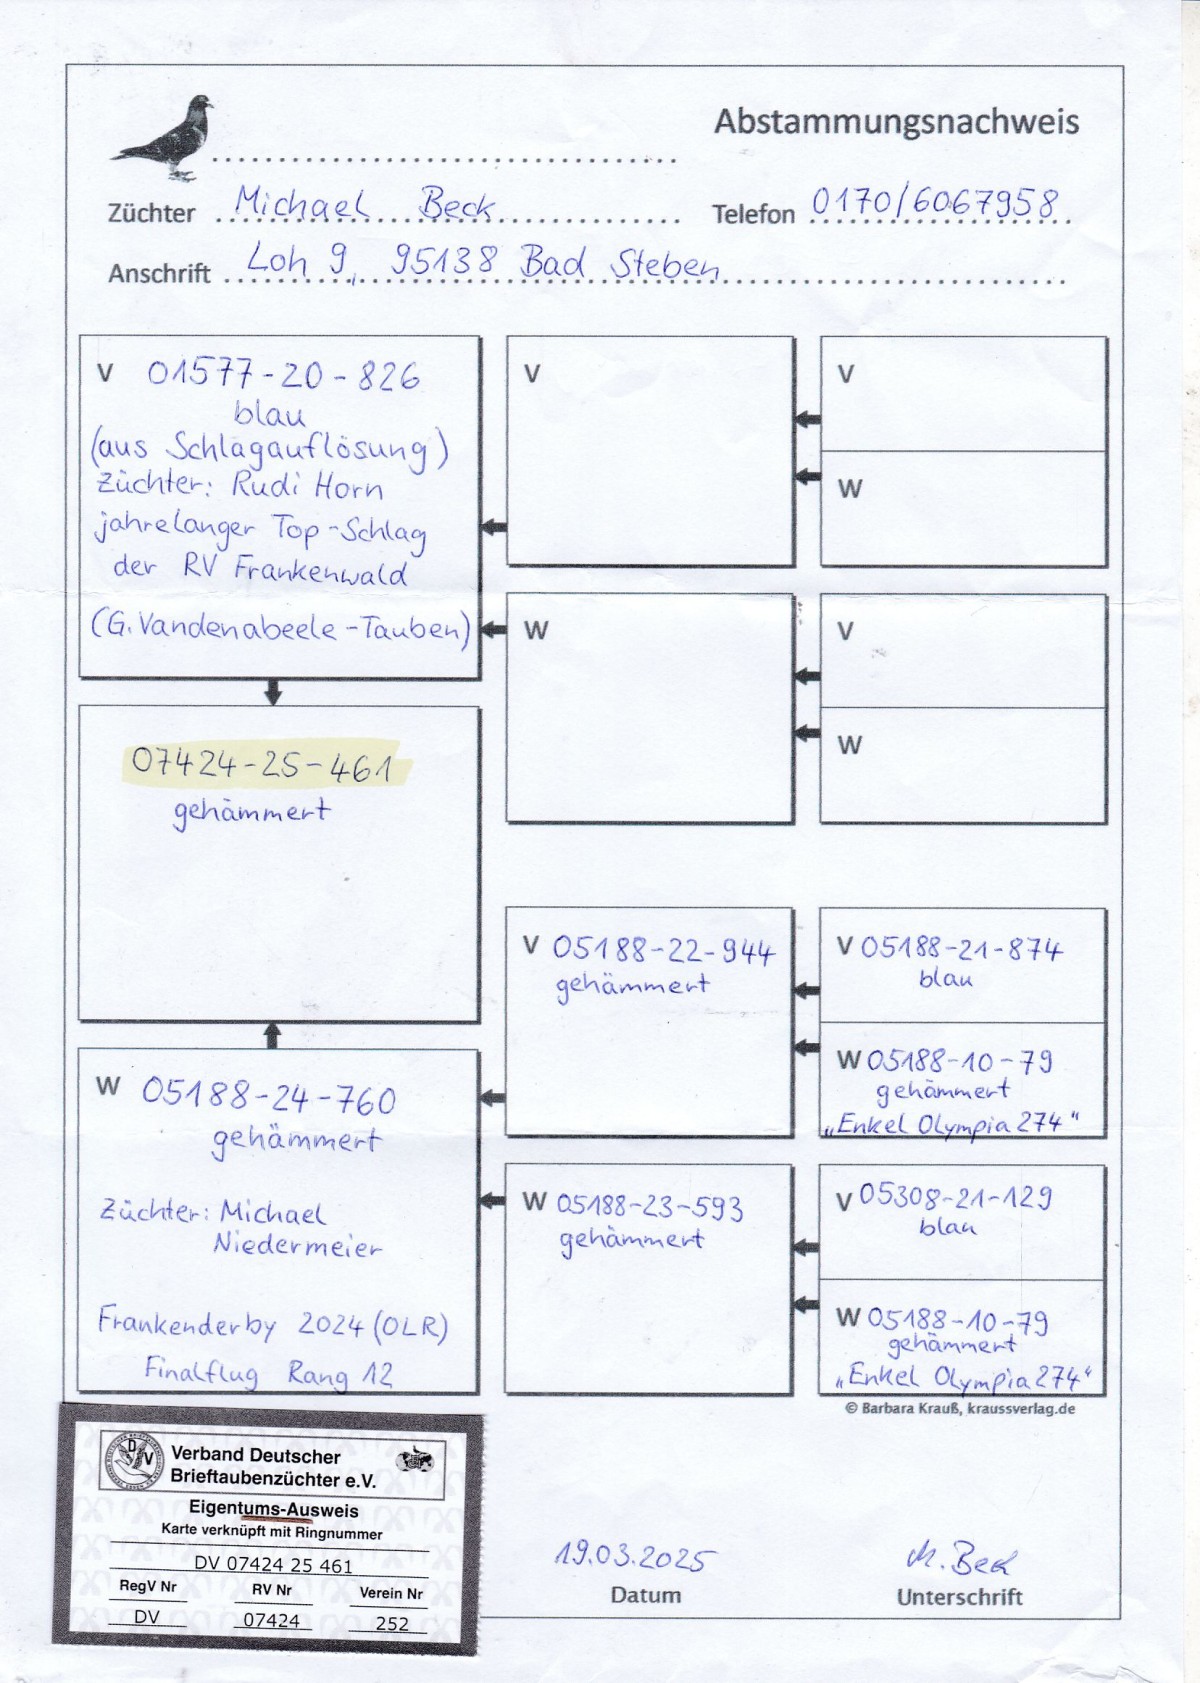 Abstammungsnachweis
Züchter Michael Beck
Telefon 0170/6067958
Anschrift Loh 9, 95138 Bad Steben
V 01577-20-826
blau
(aus Schlagauflösung)
Züchter: Rudi Horn
jahrelanger Top-Schlag
der RV Frankenwald
(G. Vandenabeele-Tauben)
V
V
W
W
V
W
07424-25-461
gehämmert
V 05188-22-944
gehämmert
V 05188-21-874
blau
W 05188-10-79
gehämmert
„Enkel Olympia 274"
W 05188-24-760
gehämmert
Züchter: Michael
Niedermeier
Frankenderby 2024 (OLR)
Finalflug Rang 12
W 05188-23-593
gehämmert
V 05308-21-129
blau
W 05188-10-79
gehämmert
„Enkel Olympia 274"
© Barbara Krauß, kraussverlag.de
DV
Verband Deutscher
Brieftaubenzüchter e.V.
Eigentums-Ausweis
Karte verknüpft mit Ringnummer
DV 07424 25 461
RegV Nr RV Nr Verein Nr
DV 07424 252
19.03.2025
Datum
M. Beck
Unterschrift